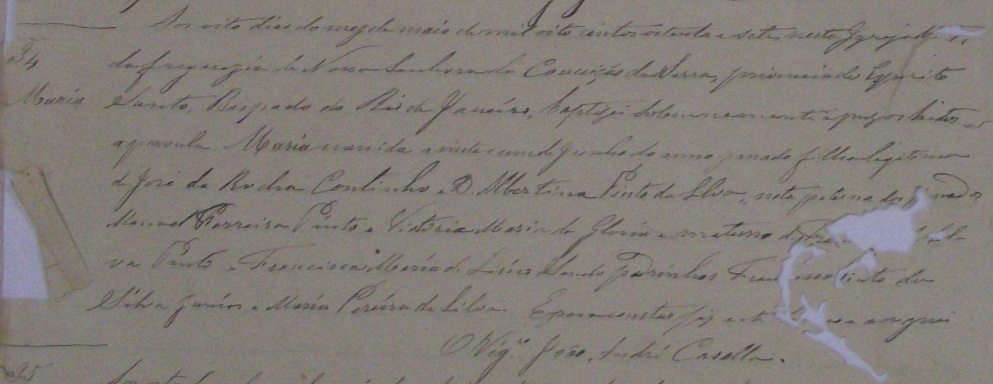 Aos oito dias do mez de maio de mil oito centos oitenta e sete nesta Igreja
74 da freguezia de Nossa Senhora da Conceição da Serra, provincia do Espirito
Maria Santo, Bispado do Rio de Janeiro, baptizei solemnemente e puz os Santos
a parvula Maria nascida a vinte e um de Junho do anno passado filha legitima
de José da Rocha Coutinho e D. Albertina Pinto da Silva, neta paterna dos finados
Manoel Ferreira Pinto e Victoria Maria da Gloria e materna
va Pinto e Francisca Maria de Sendo padrinhos Francisco Pinto da
Silva Junior e Maria Pereira da Silva. E para constar fiz este e assignei
O Vig.º João André Casella.
25